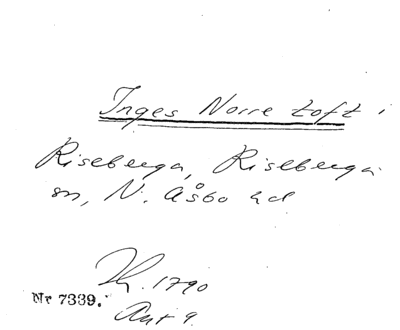 Inges Norre toft i
Riseberga, Riseberga
sn, N. Åsbo hd
Th. 1790
Nr 7339.
Akt 9.